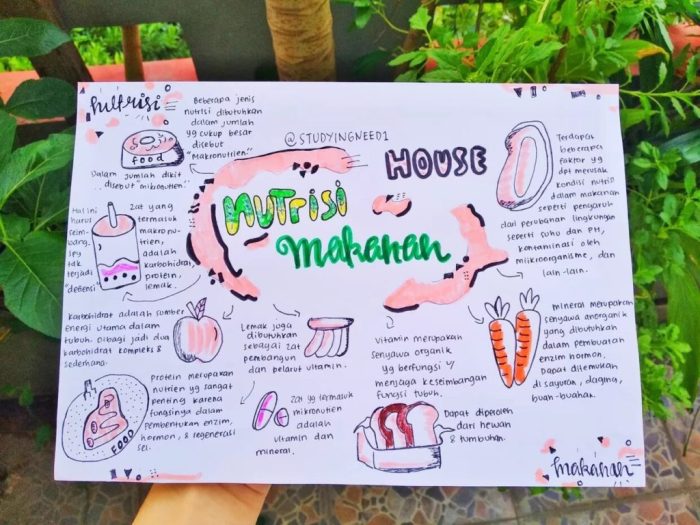 nutrisi
Beberapa jenis
nutrisi dibutuhkan
dalam jumlah
yg cukup besar
disebut
"Makronutrien"
food
Dalam jumlah dikit
disebut "mikronutien"
@STUDYINGNEED1
HOUSE
NUTrisi
makanan
Terdapat
beberapa
faktor yg
dpt merusak
kondisi nutrisi
dalam makanan
seperti pengaruh
dari perubahan lingkungan
seperti suhu dan PH,
kontaminasi oleh
mikroorganisme, dan
lain-lain.
Hal ini
harus
seim-
bang,
spy
tdk
terjadi
"defensi"
Zat yang
termasuk
makronu-
trien,
adalah
karbohidrat,
protein,
lemak.
Karbohidrat adalah sumber
energi utama dalam
tubuh. Dibagi jadi dua
karbohidrat kompleks &
sederhana.
Lemak juga
dibutuhkan
sebagai zat
pembangun
dan pelarut vitamin.
Vitamin merupakan
senyawa organik
yg berfungsi u/
menjaga keseimbangan
fungsi tubuh.
mineral merupakan
senyawa anorganik
yang dibutuhkan
dalam pembuatan
enzim hormon.
Dapat ditemukan
di sayuran, daging,
buah-buahan.
Protein merupakan
nutrien yg sangat
penting karena
fungsinya dalam
Pembentukan enzim,
hormon, & regenerasi
sel.
FOOD
Zat yg termasuk
mikronutien
adalah
vitamin dan
mineral.
Dapat diperoleh
dari hewan
& tumbuhan.
makanan